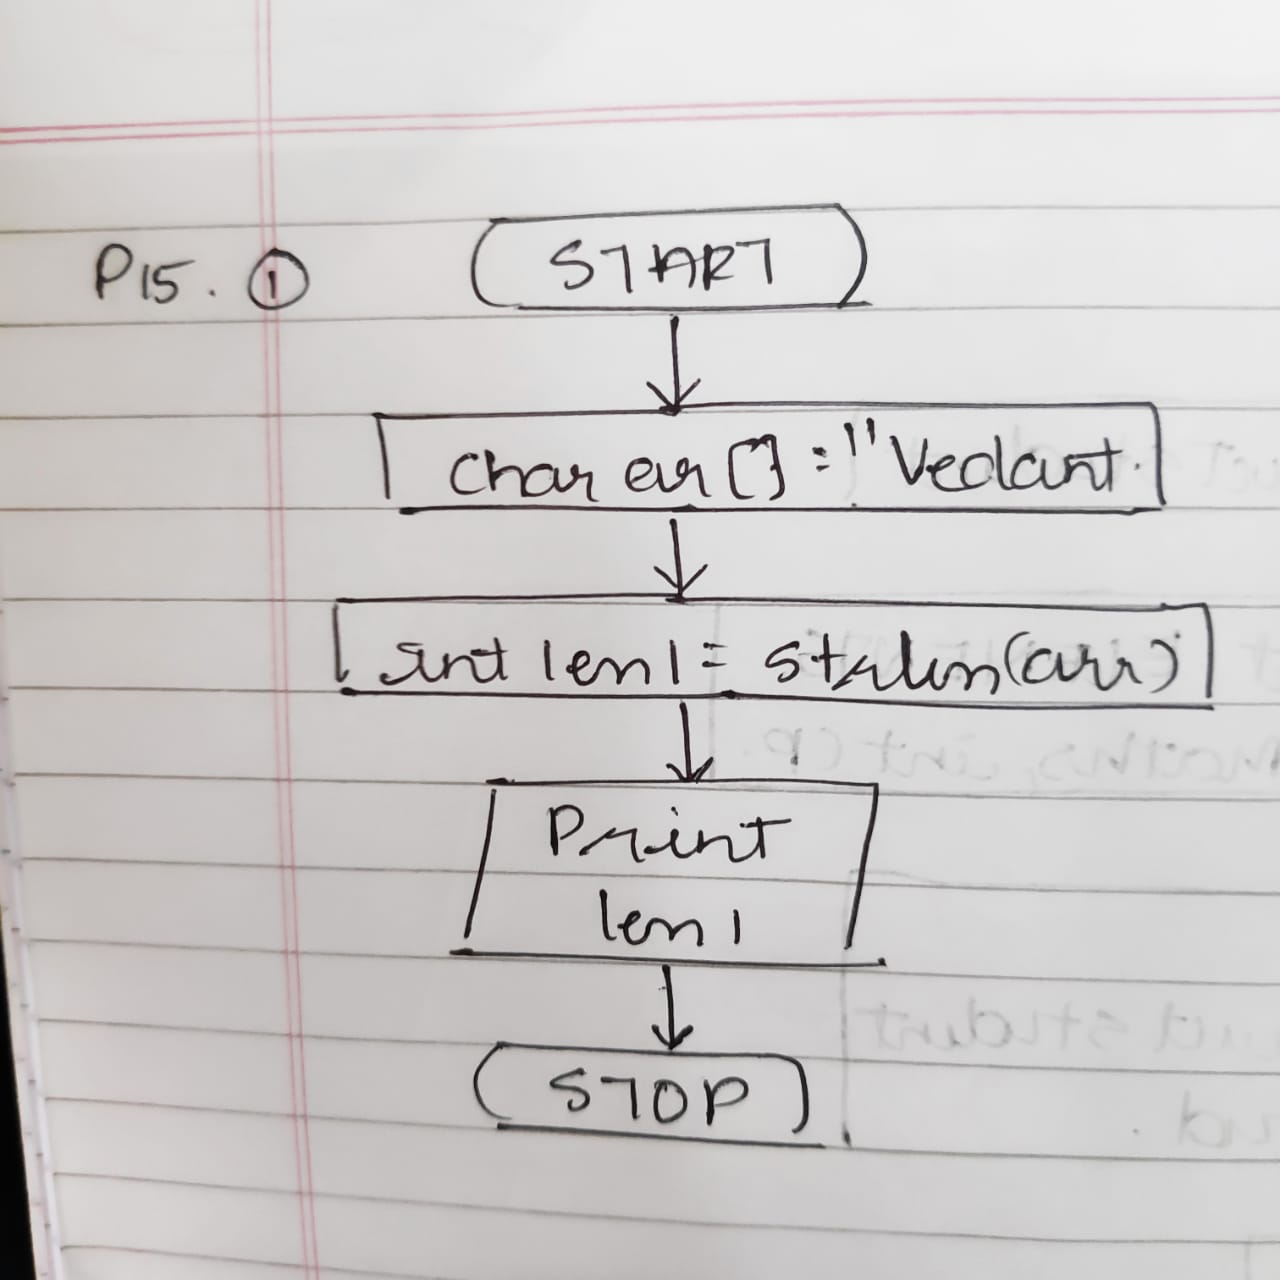 P15. ①
START
char arr[] = "Vedant.
int len1 = strlen(arr)
Print
len1
STOP